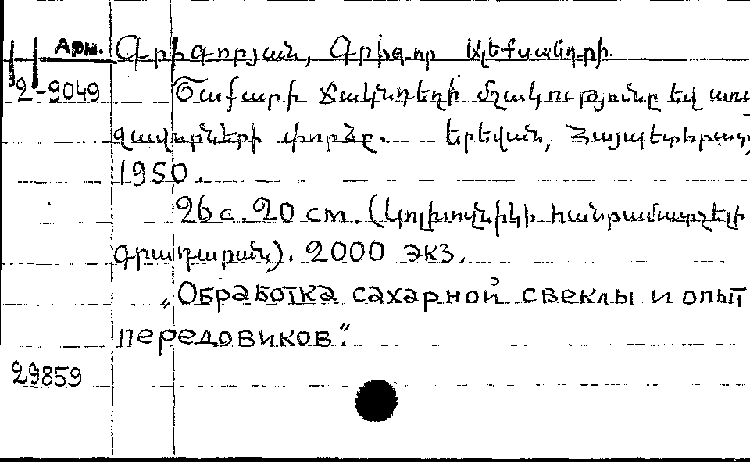 Арм. Գրիգորյան, Գրիգոր Ալեքսանդրի
2-9049 Շաքարի ճակնդեղի մշակությունը եվ առա
ջավորների փորձը. Երեվան, Հայպետհրատ,
1950.
26 с. 20 см. (Կոլխոզնիկի հանրամատչելի
գրադարան). 2000 экз.
„Обработка сахарной свеклы и опыт
передовиков".
29859